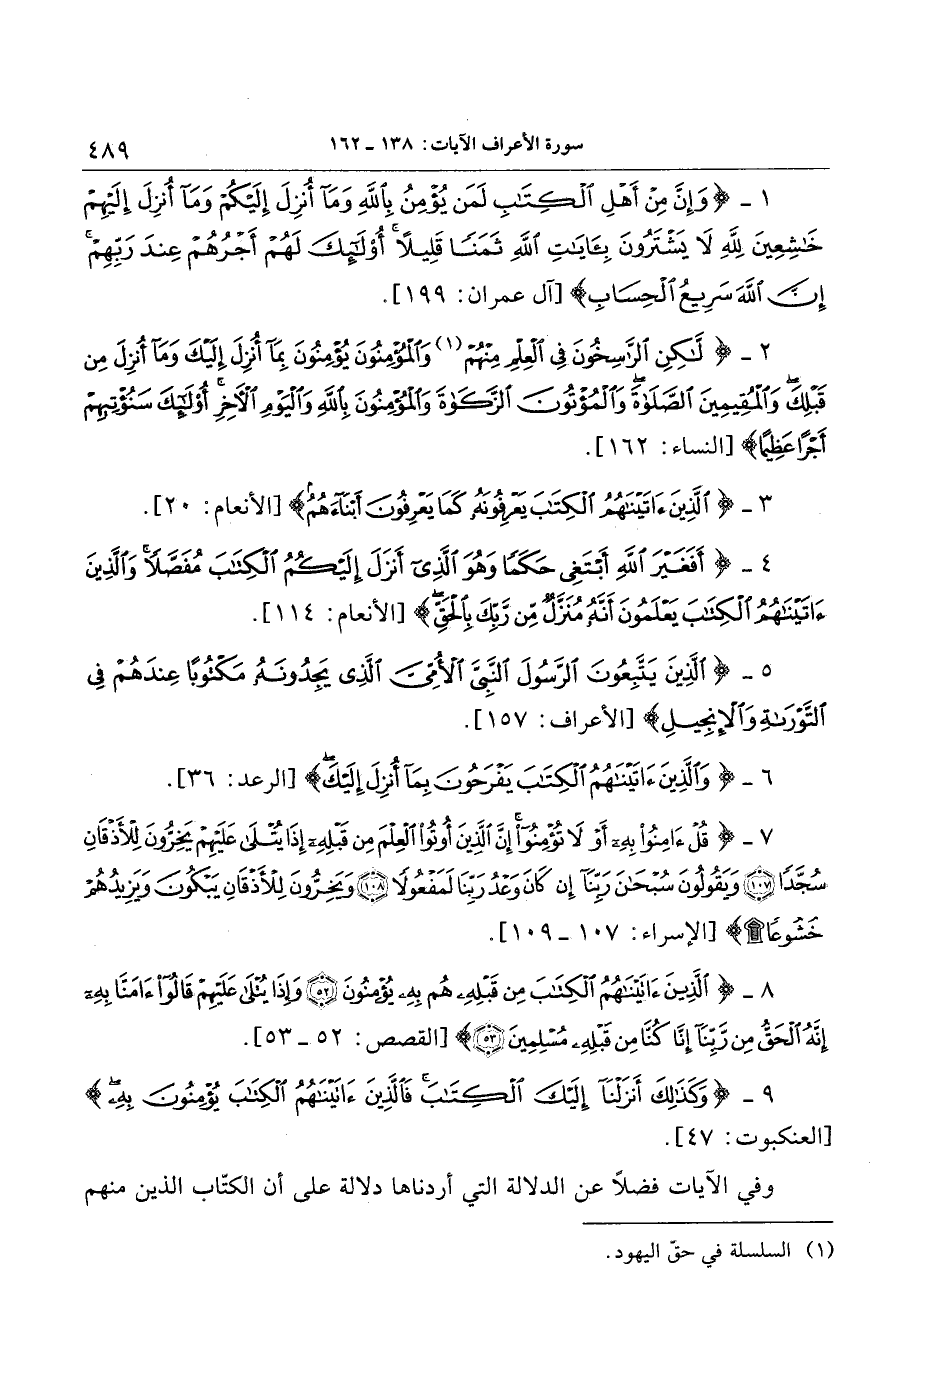 سورة الأعراف الآيات: ١٣٨ ـ ١٦٢ ٤٨٩
١ ـ ﴿ وَإِنَّ مِنْ أَهْلِ ٱلْكِتَٰبِ لَمَن يُؤْمِنُ بِٱللَّهِ وَمَآ أُنزِلَ إِلَيْكُمْ وَمَآ أُنزِلَ إِلَيْهِمْ
خَٰشِعِينَ لِلَّهِ لَا يَشْتَرُونَ بِـَٔايَٰتِ ٱللَّهِ ثَمَنًا قَلِيلًا ۗ أُو۟لَٰٓئِكَ لَهُمْ أَجْرُهُمْ عِندَ رَبِّهِمْ ۗ
إِنَّ ٱللَّهَ سَرِيعُ ٱلْحِسَابِ﴾ [آل عمران: ١٩٩].
٢ ـ ﴿ لَّٰكِنِ ٱلرَّٰسِخُونَ فِى ٱلْعِلْمِ مِنْهُمْ (١) وَٱلْمُؤْمِنُونَ يُؤْمِنُونَ بِمَآ أُنزِلَ إِلَيْكَ وَمَآ أُنزِلَ مِن
قَبْلِكَ ۚ وَٱلْمُقِيمِينَ ٱلصَّلَوٰةَ ۚ وَٱلْمُؤْتُونَ ٱلزَّكَوٰةَ وَٱلْمُؤْمِنُونَ بِٱللَّهِ وَٱلْيَوْمِ ٱلْءَاخِرِ ۚ أُو۟لَٰٓئِكَ سَنُؤْتِيهِمْ
أَجْرًا عَظِيمًا﴾ [النساء: ١٦٢].
٣ ـ ﴿ ٱلَّذِينَ ءَاتَيْنَٰهُمُ ٱلْكِتَٰبَ يَعْرِفُونَهُۥ كَمَا يَعْرِفُونَ أَبْنَآءَهُمُ﴾ [الأنعام: ٢٠].
٤ ـ ﴿ أَفَغَيْرَ ٱللَّهِ أَبْتَغِى حَكَمًا وَهُوَ ٱلَّذِىٓ أَنزَلَ إِلَيْكُمُ ٱلْكِتَٰبَ مُفَصَّلًا ۚ وَٱلَّذِينَ
ءَاتَيْنَٰهُمُ ٱلْكِتَٰبَ يَعْلَمُونَ أَنَّهُۥ مُنَزَّلٌ مِّن رَّبِّكَ بِٱلْحَقِّ ۖ﴾ [الأنعام: ١١٤].
٥ ـ ﴿ ٱلَّذِينَ يَتَّبِعُونَ ٱلرَّسُولَ ٱلنَّبِىَّ ٱلْأُمِّىَّ ٱلَّذِى يَجِدُونَهُۥ مَكْتُوبًا عِندَهُمْ فِى
ٱلتَّوْرَىٰةِ وَٱلْإِنجِيلِ﴾ [الأعراف: ١٥٧].
٦ ـ ﴿ وَٱلَّذِينَ ءَاتَيْنَٰهُمُ ٱلْكِتَٰبَ يَفْرَحُونَ بِمَآ أُنزِلَ إِلَيْكَ ۖ﴾ [الرعد: ٣٦].
٧ ـ ﴿ قُلْ ءَامِنُوا۟ بِهِۦٓ أَوْ لَا تُؤْمِنُوٓا۟ ۚ إِنَّ ٱلَّذِينَ أُوتُوا۟ ٱلْعِلْمَ مِن قَبْلِهِۦٓ إِذَا يُتْلَىٰ عَلَيْهِمْ يَخِرُّونَ لِلْأَذْقَانِ
سُجَّدًا ١٠٧ وَيَقُولُونَ سُبْحَٰنَ رَبِّنَآ إِن كَانَ وَعْدُ رَبِّنَا لَمَفْعُولًا ١٠٨ وَيَخِرُّونَ لِلْأَذْقَانِ يَبْكُونَ وَيَزِيدُهُمْ
خُشُوعًا ۩﴾ [الإسراء: ١٠٧ ـ ١٠٩].
٨ ـ ﴿ ٱلَّذِينَ ءَاتَيْنَٰهُمُ ٱلْكِتَٰبَ مِن قَبْلِهِۦ هُم بِهِۦ يُؤْمِنُونَ ٥٢ وَإِذَا يُتْلَىٰ عَلَيْهِمْ قَالُوٓا۟ ءَامَنَّا بِهِۦٓ
إِنَّهُ ٱلْحَقُّ مِن رَّبِّنَآ إِنَّا كُنَّا مِن قَبْلِهِۦ مُسْلِمِينَ ٥٣﴾ [القصص: ٥٢ ـ ٥٣].
٩ ـ ﴿ وَكَذَٰلِكَ أَنزَلْنَآ إِلَيْكَ ٱلْكِتَٰبَ ۚ فَٱلَّذِينَ ءَاتَيْنَٰهُمُ ٱلْكِتَٰبَ يُؤْمِنُونَ بِهِۦ ۖ﴾
[العنكبوت: ٤٧].
وفي الآيات فضلاً عن الدلالة التي أردناها دلالة على أن الكتّاب الذين منهم
(١) السلسلة في حقّ اليهود.